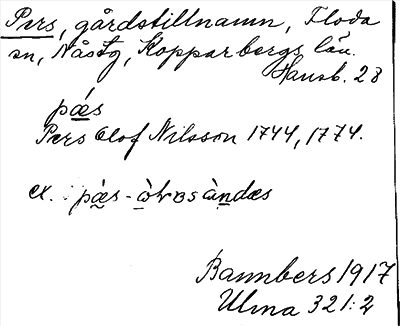 Pers, gårdstillnamn, Floda
sn, Nåstg, Kopparbergs län.
Hausb. 28
pǽs
Pers Olof Nilsson 1744, 1774.
ex.
Bannbers 1917
Ulma 321:2